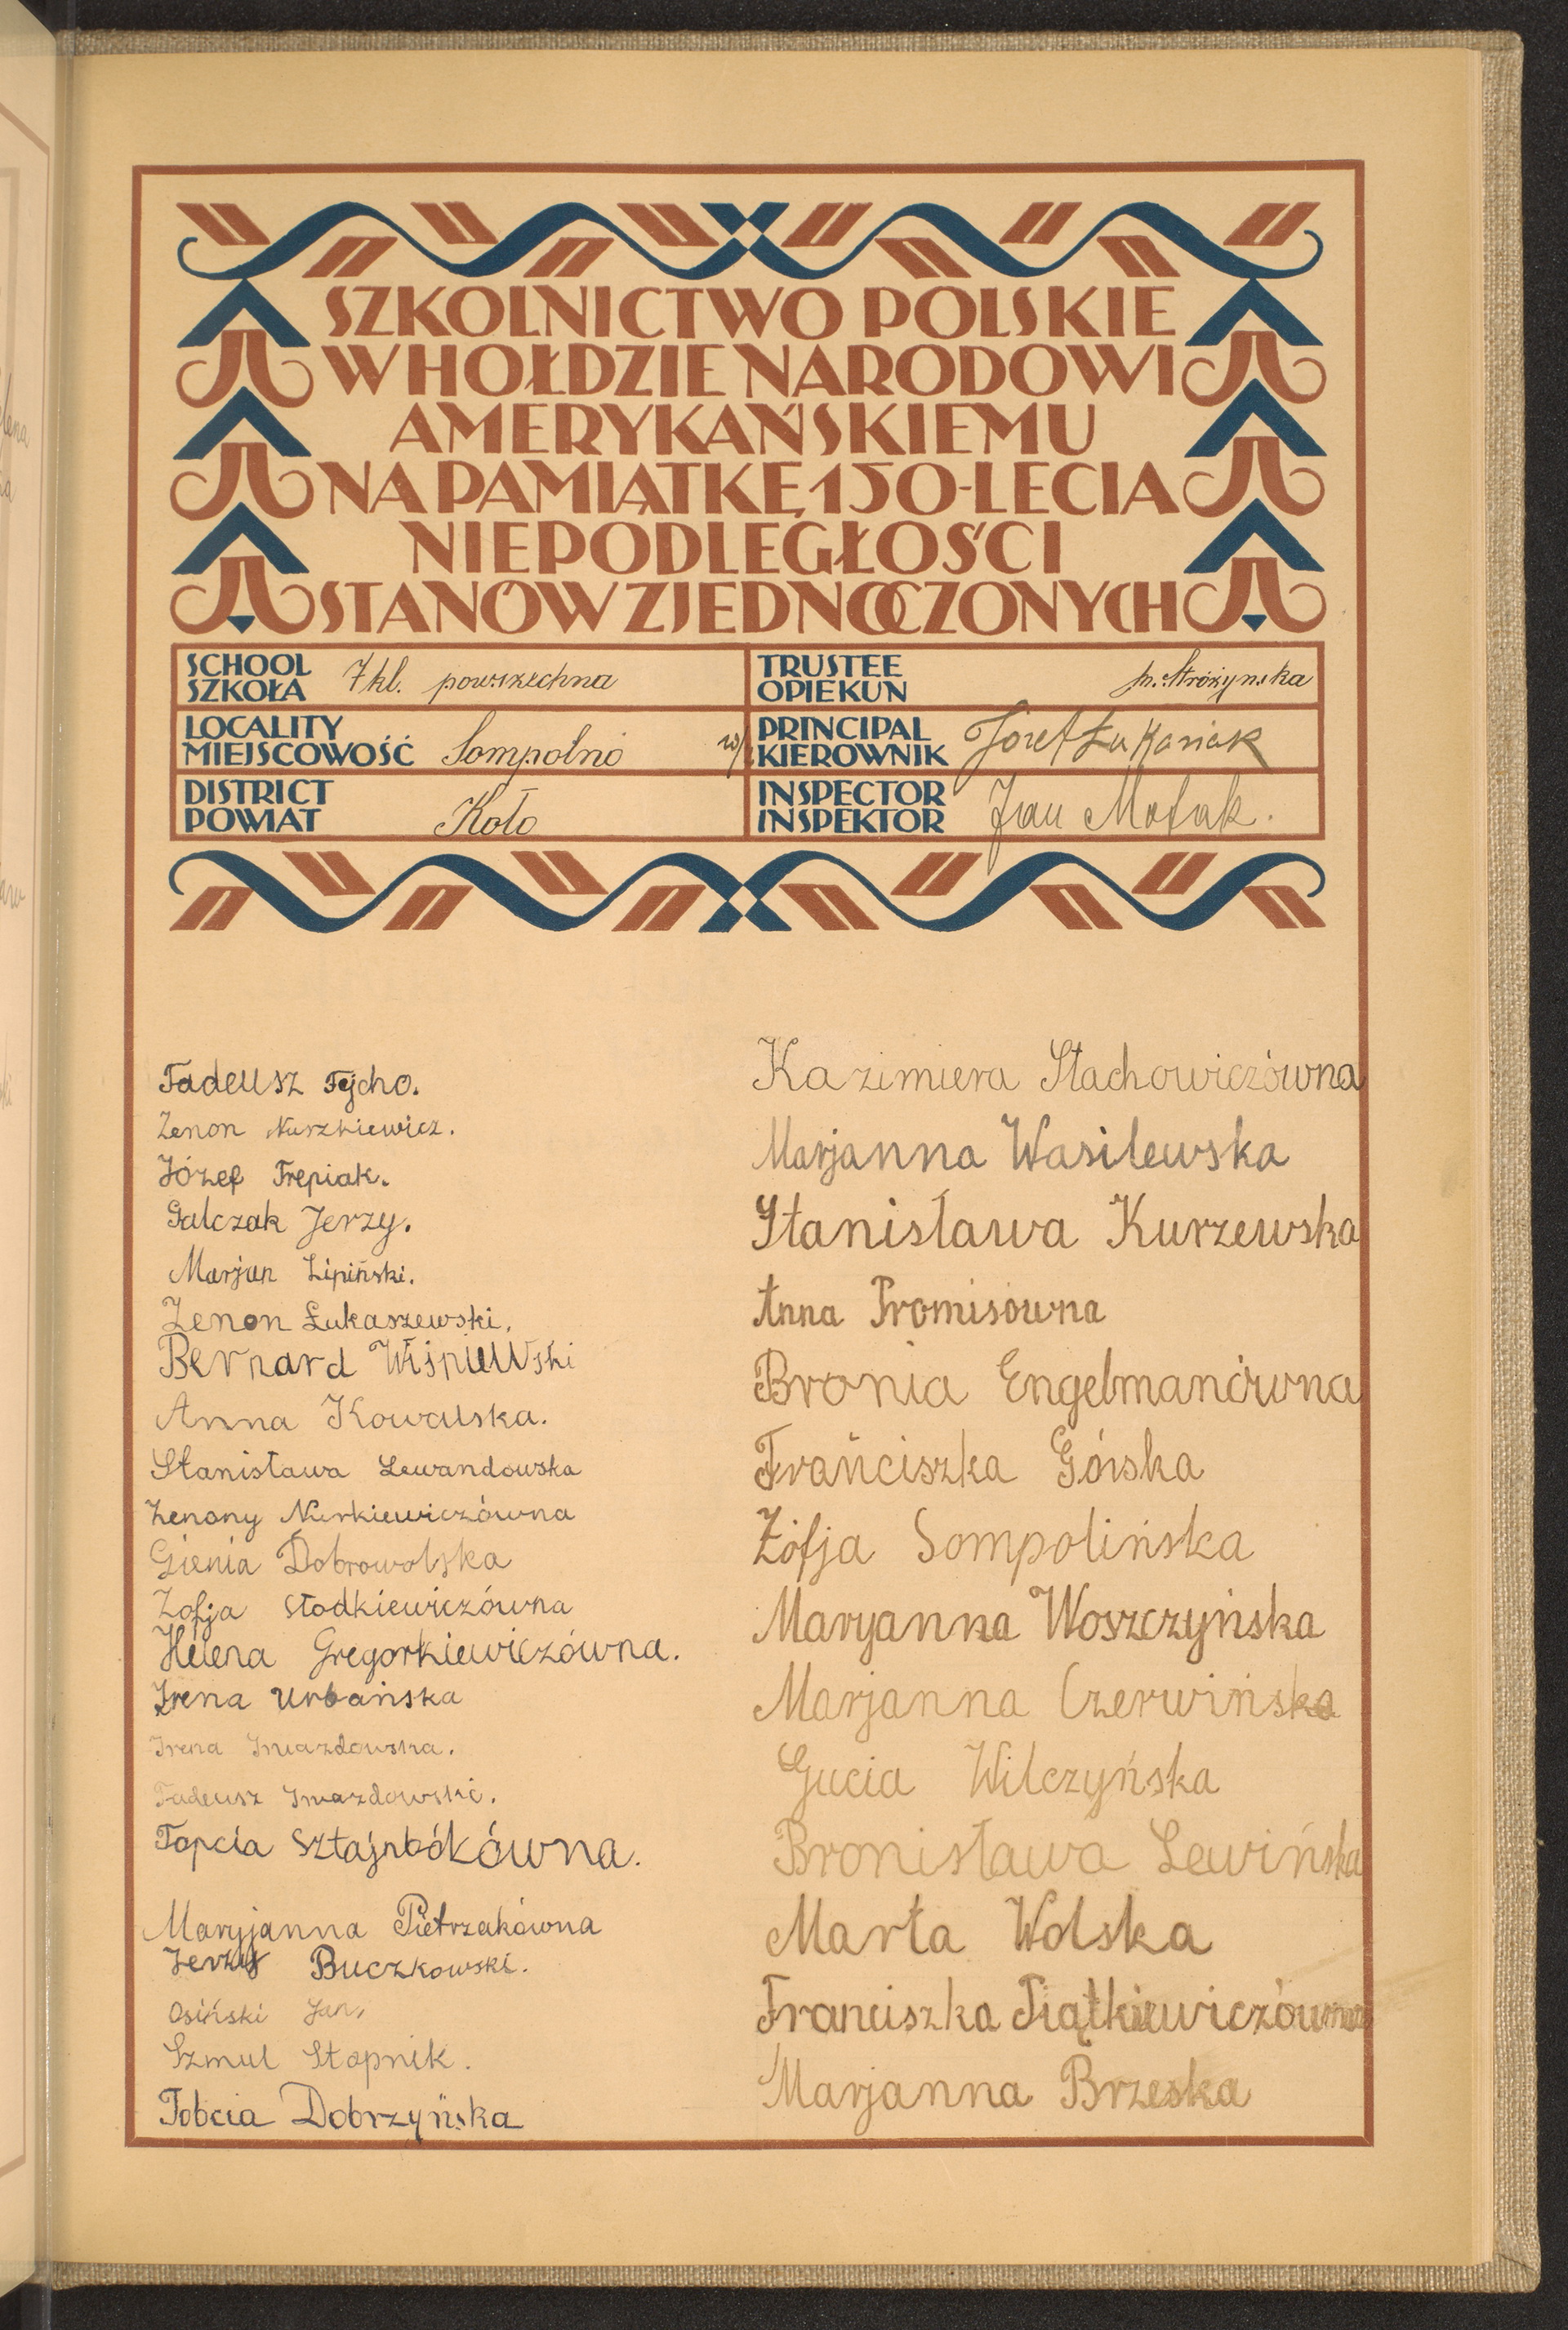 SZKOLNICTWO POLSKIE
W HOŁDZIE NARODOWI
AMERYKAŃSKIEMU
NA PAMIĄTKĘ 150-LECIA
NIEPODLEGŁOŚCI
STANÓW ZJEDNOCZONYCH
SCHOOL
SZKOŁA 7 kl. powszechna
TRUSTEE
OPIEKUN p. Stróżynska
LOCALITY
MIEJSCOWOŚĆ Sompolno w/
PRINCIPAL
KIEROWNIK Józef Łukasiak
DISTRICT
POWIAT Koło
INSPECTOR
INSPEKTOR Jan
Tadeusz Tycho.
Zenon Nuszkiewicz.
Józef Trepiak.
Galczak Jerzy.
Marjan Lipiński.
Zenon Łukaszewski.
Bernard Wiśniewski
Anna Kowalska.
Stanisława Lewandowska
Zenony Nurkiewiczówna
Gienia Dobrowolska
Zofja Słodkiewiczówna
Helena Gregorkiewiczówna.
Irena Urbańska
Irena Gwiazdowska.
Tadeusz Gwiazdowski.
Topcia Sztajnbókówna.
Maryjanna Pietrzakówna
Jerzy Buczkowski.
Osiński Jan,
Szmul Stopnik.
Tobcia Dobrzyńska
Kazimiera Stachowiczówna
Marjanna Wasilewska
Stanisława Kurzewska
Anna Promisówna
Bronia Engelmanówna
Frańciszka Górska
Zófja Sompolińska
Maryanna Woszczyńska
Marjanna Czerwińska
Gucia Wilczyńska
Bronisława Lewińska
Marta Wolska
Franciszka Piątkiewiczówna
Marjanna Brzeska